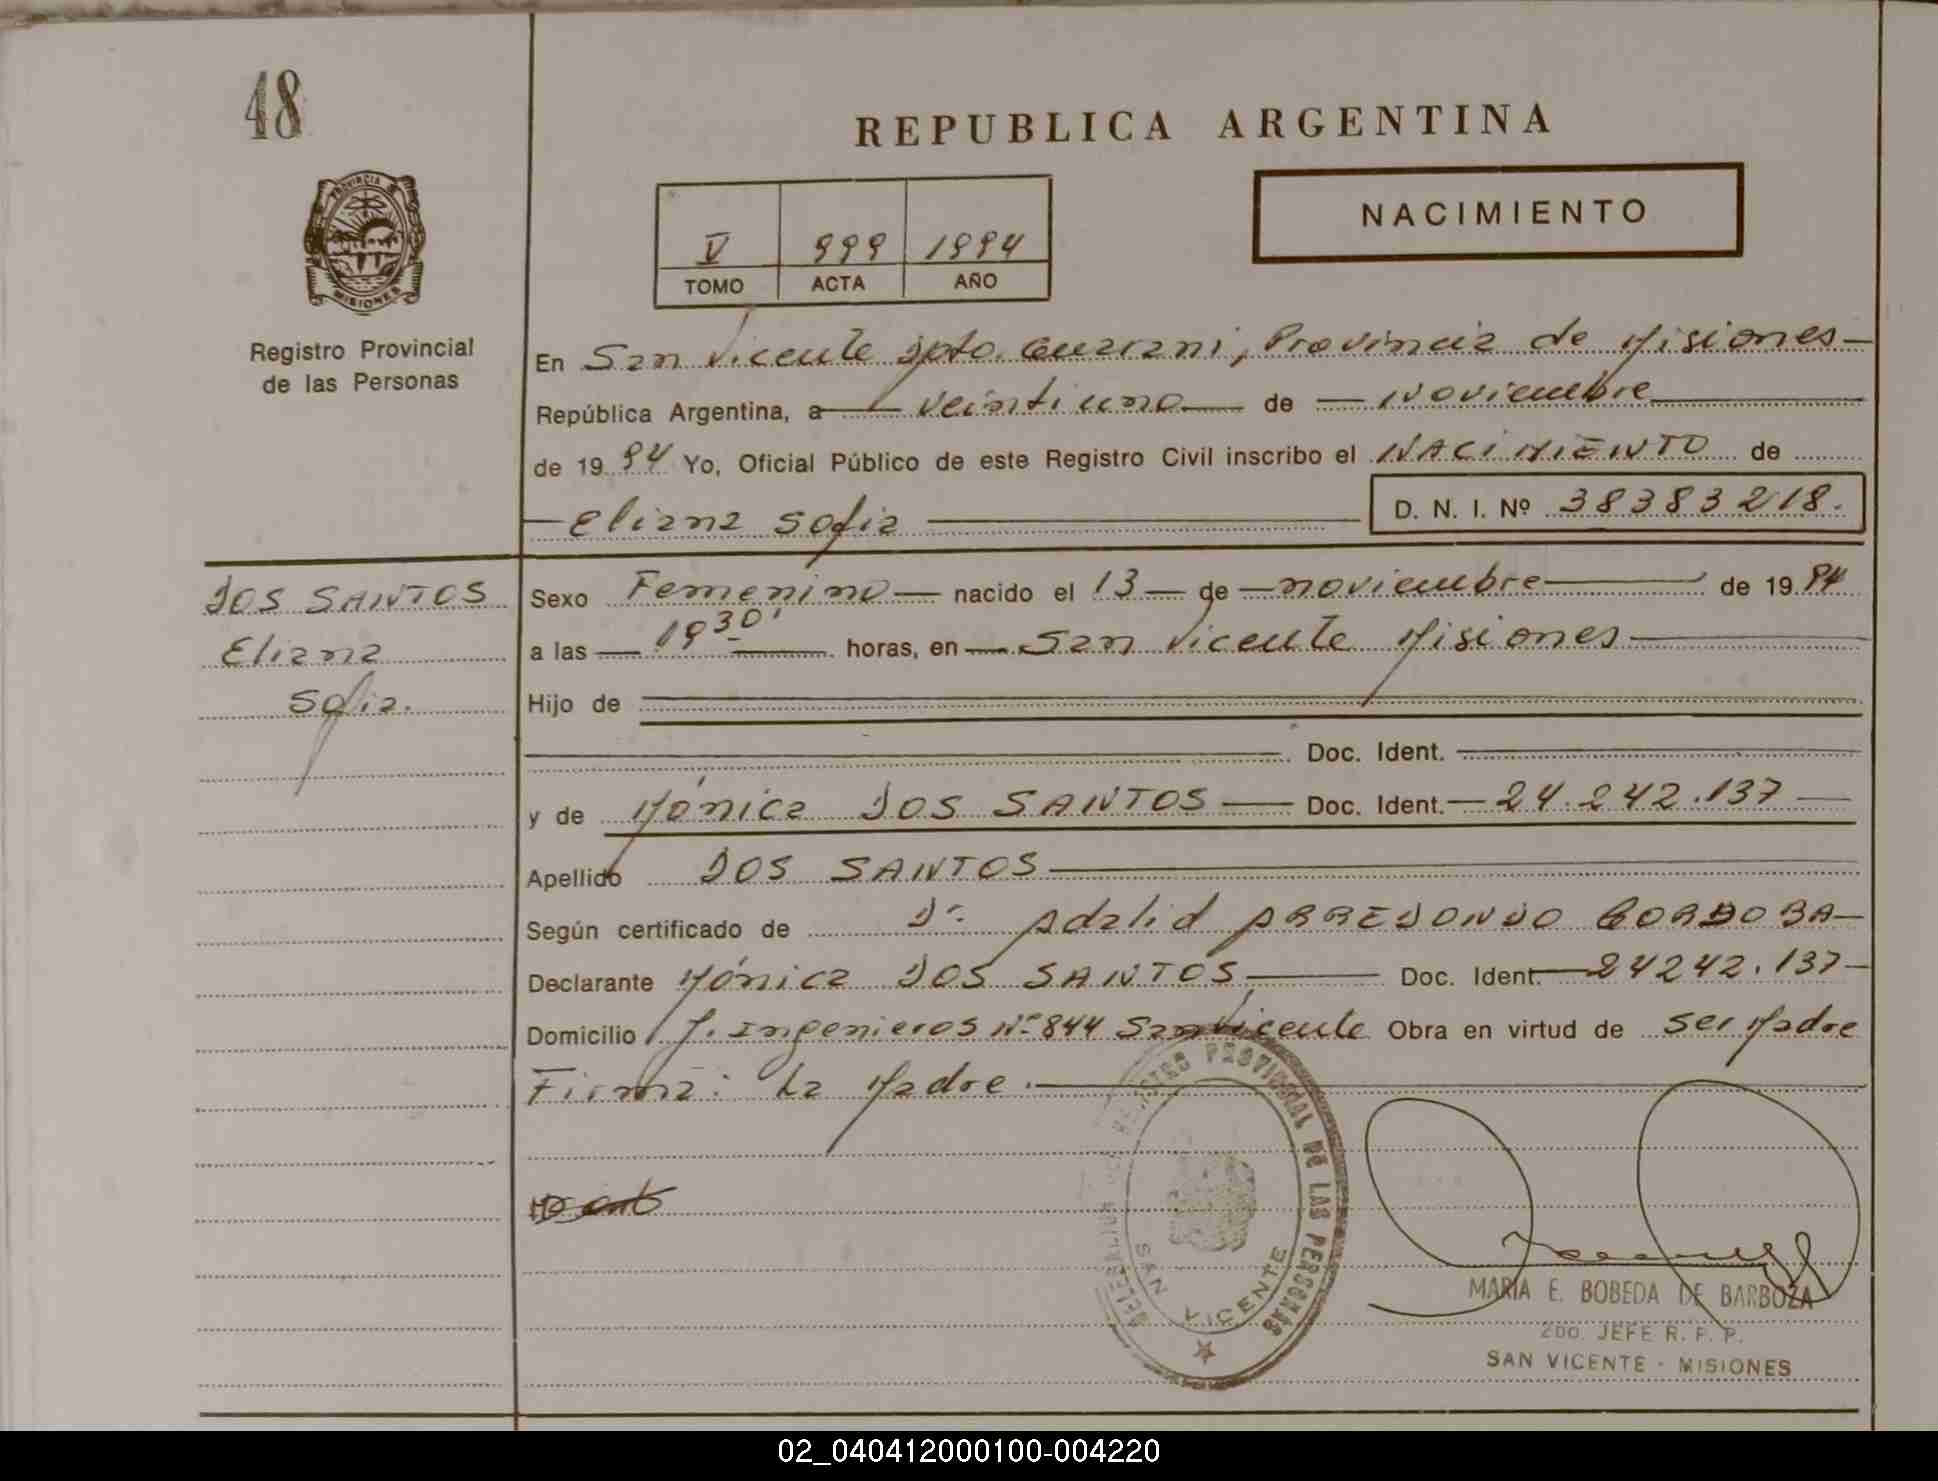 48
REPUBLICA ARGENTINA
PROVINCIA DE MISIONES
NACIMIENTO
V 999 1994
TOMO ACTA AÑO
Registro Provincial
de las Personas
En San Vicente Dpto. Guarani, Provincia de Misiones
República Argentina, a veintiuno de Noviembre
de 1994 Yo, Oficial Público de este Registro Civil inscribo el NACIMIENTO de
Eliana Sofia D. N. I. Nº 38383218.
DOS SANTOS
Eliana
Sofia.
Sexo Femenino nacido el 13 de noviembre de 1994
a las 19 30' horas, en San Vicente Misiones
Hijo de
Doc. Ident.
y de Mónica DOS SANTOS Doc. Ident. 24.242.137
Apellido DOS SANTOS
Según certificado de Dr. Adalid ARREDONDO CORDOBA
Declarante Mónica DOS SANTOS, Doc. Ident. 24242.137
Domicilio J. Ingenieros Nº 844 San Vicente Obra en virtud de ser Madre
Firma: La Madre.
REGISTRO PROVINCIAL DE LAS PERSONAS
SAN VICENTE
MARIA E. BOBEDA DE BARBOZA
2do. JEFE R. P. P.
SAN VICENTE - MISIONES
02_040412000100-004220